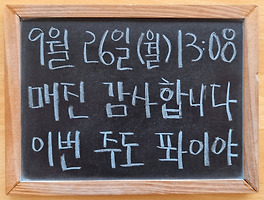 9월 26일(월) 13:08
매진 감사합니다
이번 주도 퐈이야